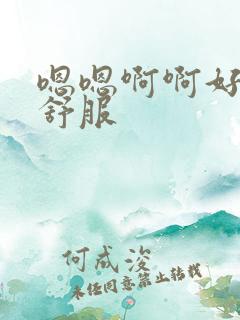 嗯嗯啊啊好
舒服
何成浚
未经同意禁止转载